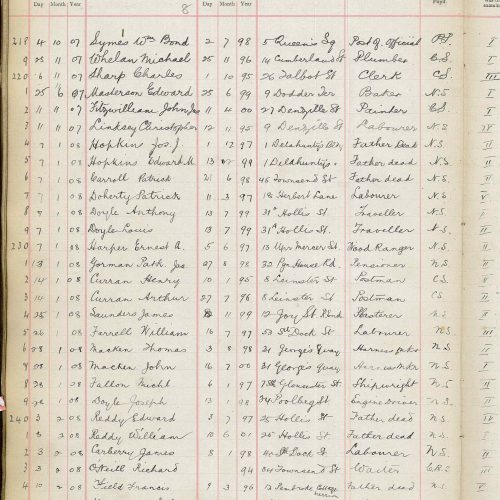 8
Day Month Year Day Month Year Pupil
218 4 10 07 Symes Wm Bond 2 7 98 5 Queen's Sq Post O. Official P.P. I
9 25 11 07 Whelan Michael 25 11 96 14 Cumberland St Plumber C.S. I
220 6 11 07 Sharp Charles 1 10 95 26 Talbot St Clerk C.S. III
1 25 6 07 Masterson Edward 25 6 99 9 Dodder Ter Baker N.S. I
2 11 11 07 Fitzwilliam John Jas 11 4 00 27 Denzille St Painter C.S. I
3 11 11 07 Lindsay Christopher 12 11 95 9 Denzille St Labourer N.S.
4 7 1 08 Hopkin Jos. J. 1 12 97 1 Delahunty Father Dead N.S.
5 7 1 08 Hopkins Edward M 13 99 1 Delahuntys Father dead N.S. II
6 7 1 08 Carroll Patrick 21 6 98 45 Townsend St Father dead N.S. II
7 7 1 08 Doherty Patrick 11 3 97 18 Herbert Lane Labourer N.S.
8 7 1 08 Doyle Anthony 13 7 99 31A Hollis St Traveller N.S.
9 7 1 08 Doyle Louis 13 7 99 31A Hollis St. Traveller N.S. II
230 7 1 08 Harper Ernest A. 5 6 97 13 Upr Mercer St. Food Ranger N.S. II
1 13 1 08 Gorman Path. Jos. 27 8 98 32 Rd. Pensioner N.S. II
2 14 1 08 Curran Henry 10 1 95 8 Leinster St Postman C.S.
3 14 1 08 Curran Arthur 27 7 96 8 Leinster St Postman C.S.
4 25 1 08 Saunders James 8 11 99 12 Gory St Plasterer N.S. II
5 26 1 08 Farrell William 16 7 97 53 Sth Dock St Labourer N.S. III
6 28 1 08 Macken Thomas 3 8 98 31 Georges Quay Harness Mkr N.S. I
8 28 1 08 Macken John 16 7 00 31 Georges Quay Harness Mkr N.S. I
8 28 1 08 Fallon Michl 6 1 97 7 Sth Gloucester St Shipwright N.S. II
9 28 1 08 Doyle Joseph 13 1 98 24 Poolbeg St Engine Driver N.S. II
240 3 2 08 Reddy Edward 3 7 97 25 Hollis St Father dead N.S. IV
1 3 2 08 Reddy William 10 6 01 25 Hollis St Father dead N.S. I
2 3 2 08 Carberry James 8 1 98 40 Sth Dock St Labourer N.S. II
3 3 2 08 O'Neill Richard 94 Townsend St Waiter C.B.S. II
4 10 2 08 Field Francis 9 3 96 12 Pembroke Cottages Father dead N.S. V